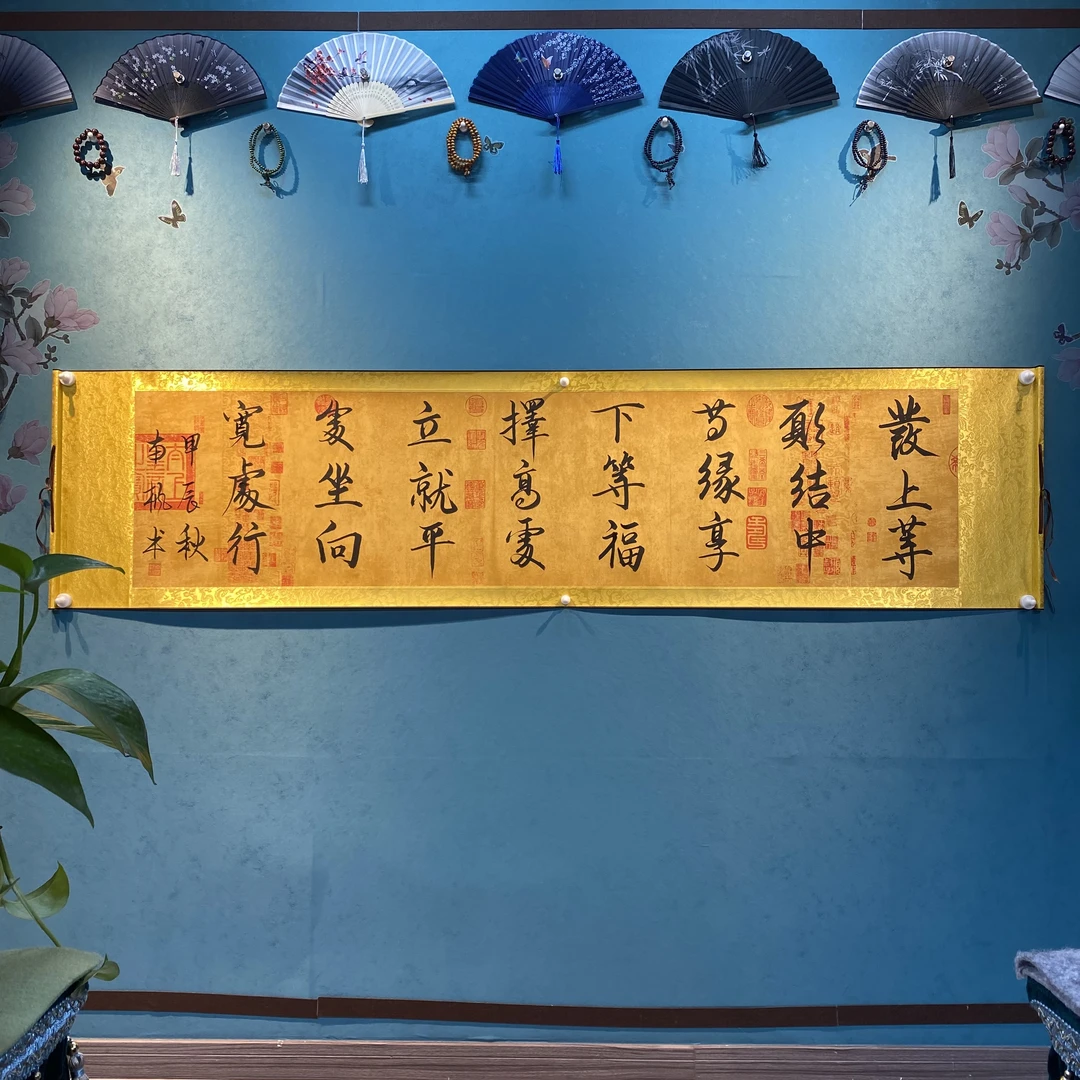 發上等
願結中
等緣享
下等福
擇高處
立就平
處坐向
寬處行
甲辰秋